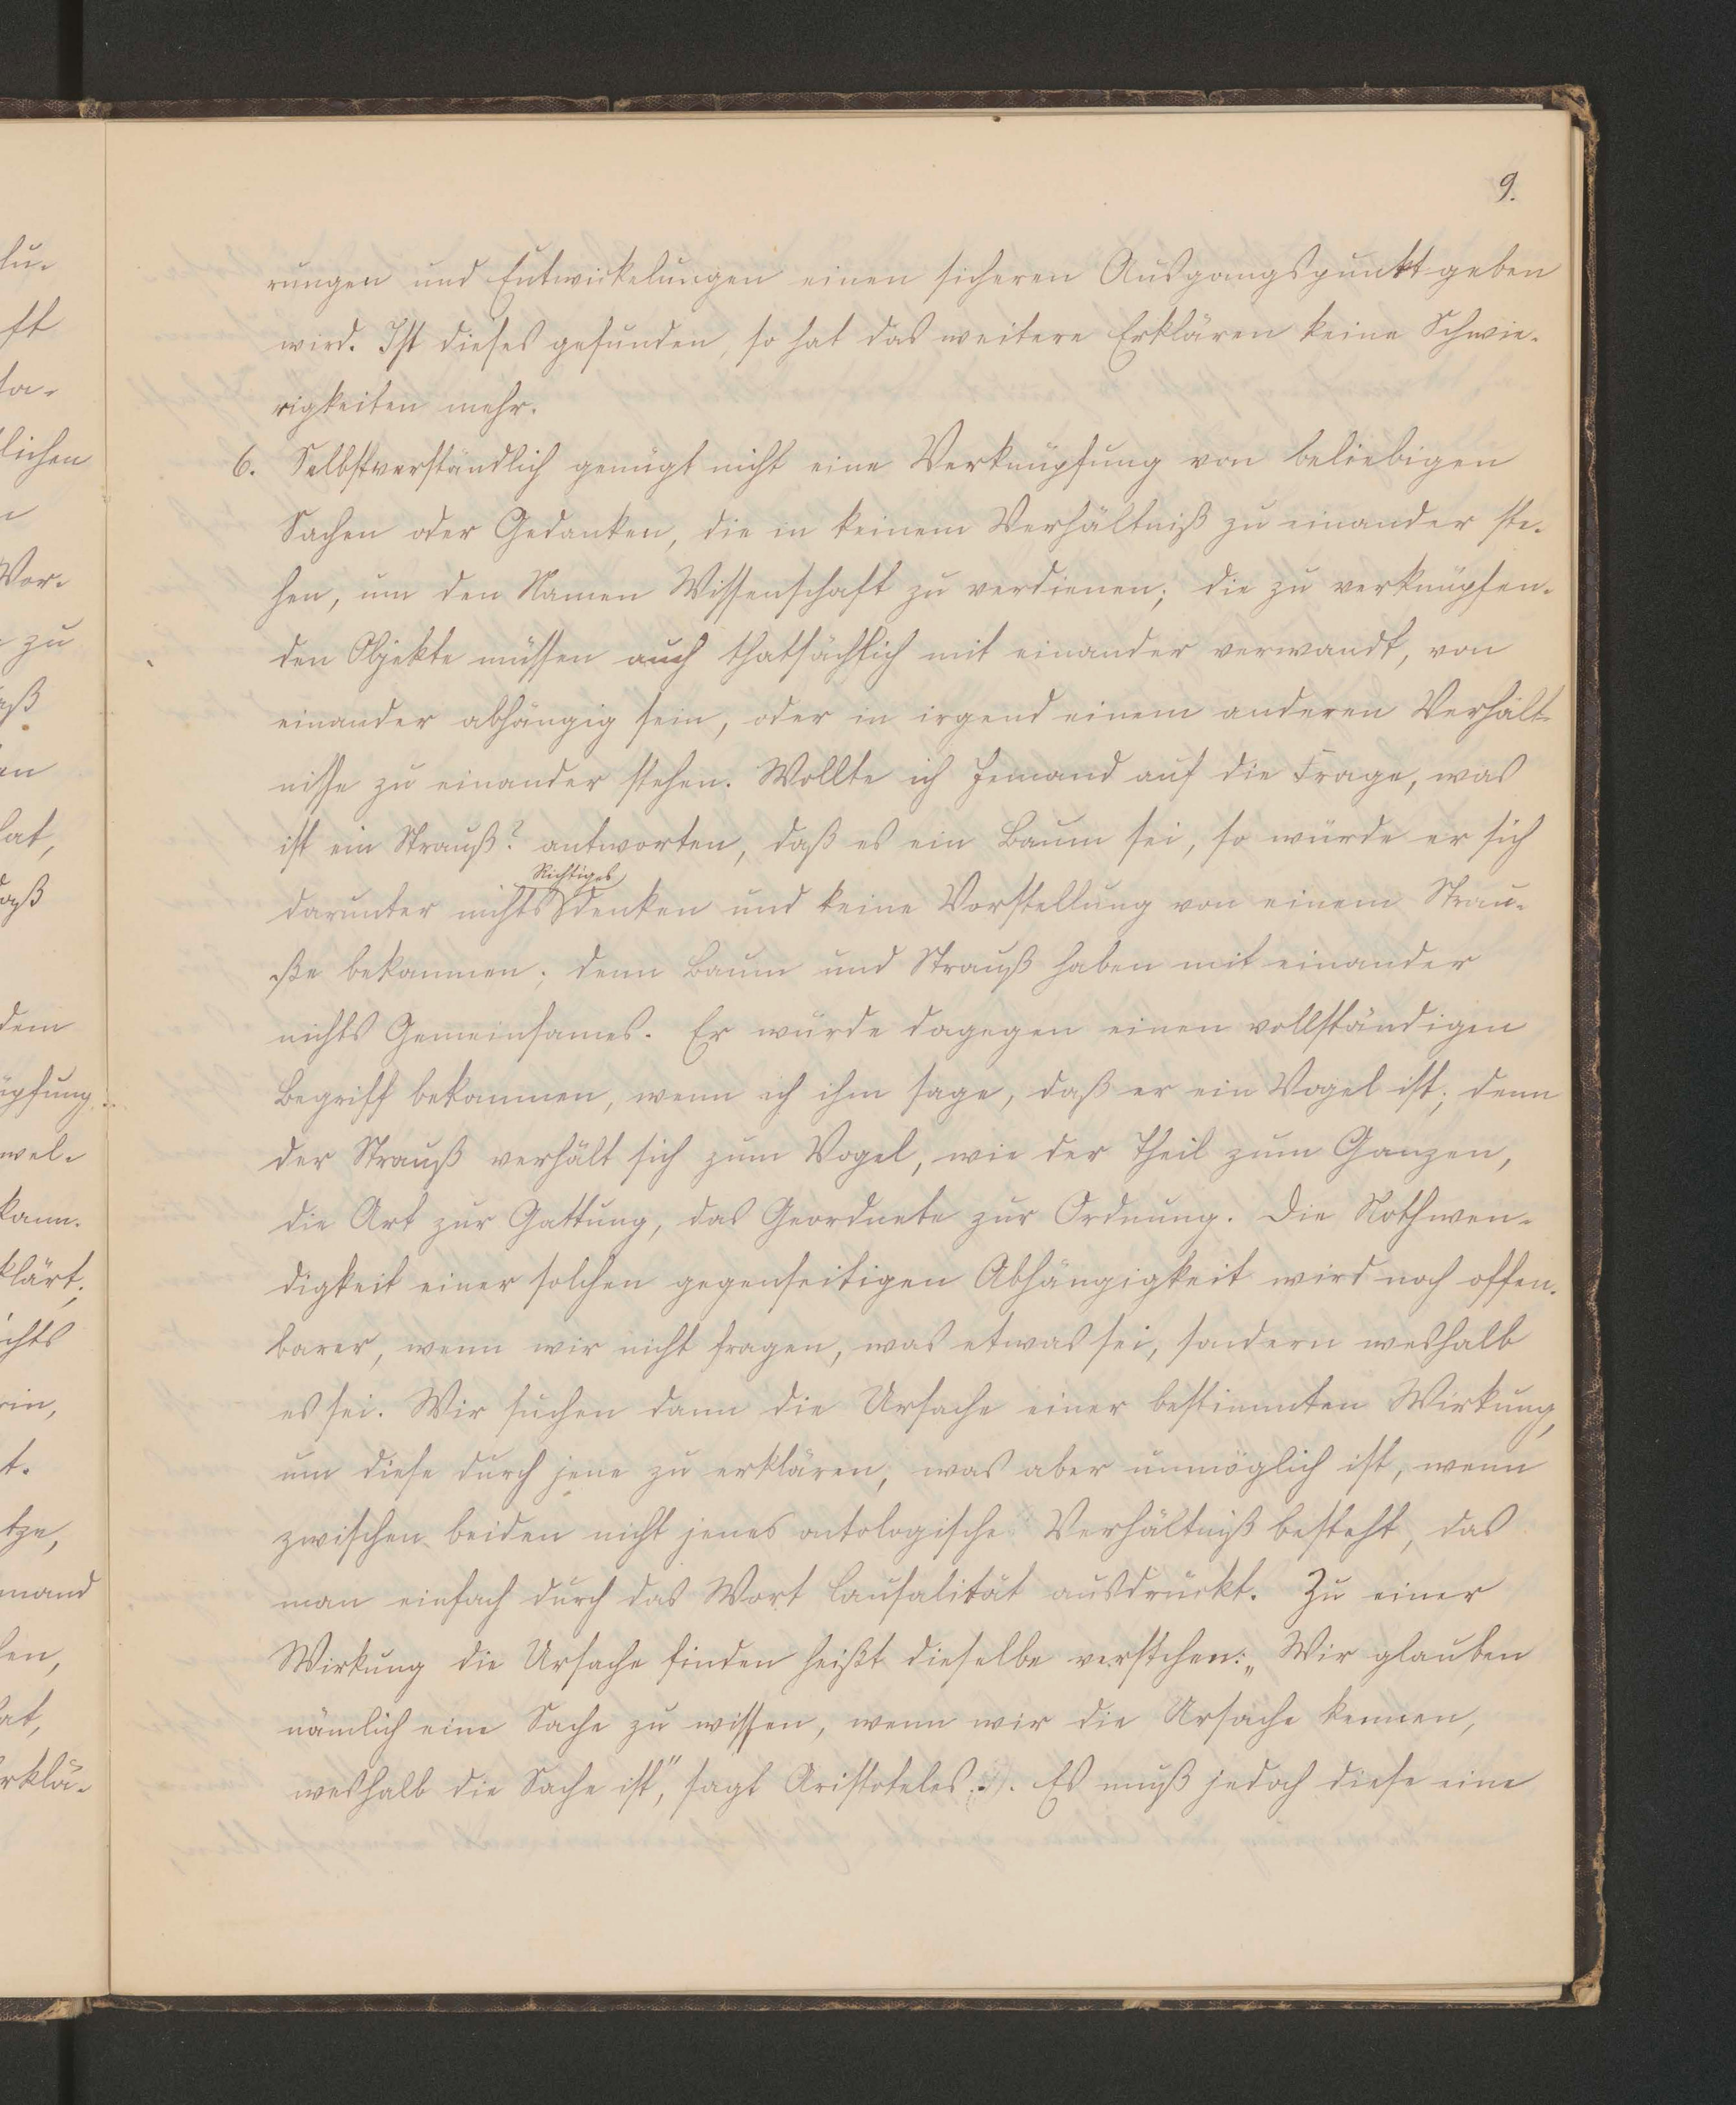 9.
rungen und Entwickelungen einen sicheren Ausgangspunkt geben
wird. Ist dieses gefunden, so hat das weitere Erklären keine Schwie-
rigkeiten mehr.
6. Selbstverständlich genügt nicht eine Verknüpfung von beliebigen
Sachen oder Gedanken, die in keinem Verhältniß zu einander ste-
hen, um den Namen Wissenschaft zu verdienen; die zu verknüpfen-
den Objekte müssen auch thatsächlich mit einander verwandt, von
einander abhängig sein, oder in irgend einem anderen Verhält-
nisse zu einander stehen. Wollte ich Jemand auf die Frage, was
ist ein Strauß? antworten, daß es ein Baum sei, so würde er sich
Richtiges
darunter nichts denken und keine Vorstellung von einem Strau-
ße bekommen; denn Baum und Strauß haben mit einander
nichts Gemeinsames. Er würde dagegen einen vollständigen
Begriff bekommen, wenn ich ihm sage, daß er ein Vogel ist; denn
der Strauß verhält sich zum Vogel, wie der Theil zum Ganzen,
die Art zur Gattung, das Geordnete zur Ordnung. Die Nothwen-
digkeit einer solchen gegenseitigen Abhängigkeit wird noch offen-
barer, wenn wir nicht fragen, was etwas sei, sondern weshalb
es sei. Wir suchen dann die Ursache einer bestimmten Wirkung,
um diese durch jene zu erklären, was aber unmöglich ist, wenn
zwischen beiden nicht jenes ontologische Verhältniß besteht, das
man einfach durch das Wort Causalität ausdrückt. Zu einer
Wirkung die Ursache finden heißt dieselbe verstehen: „Wir glauben
nämlich eine Sache zu wissen, wenn wir die Ursache kennen,
weshalb die Sache ist", sagt Aristoteles. Es muß jedoch diese eine